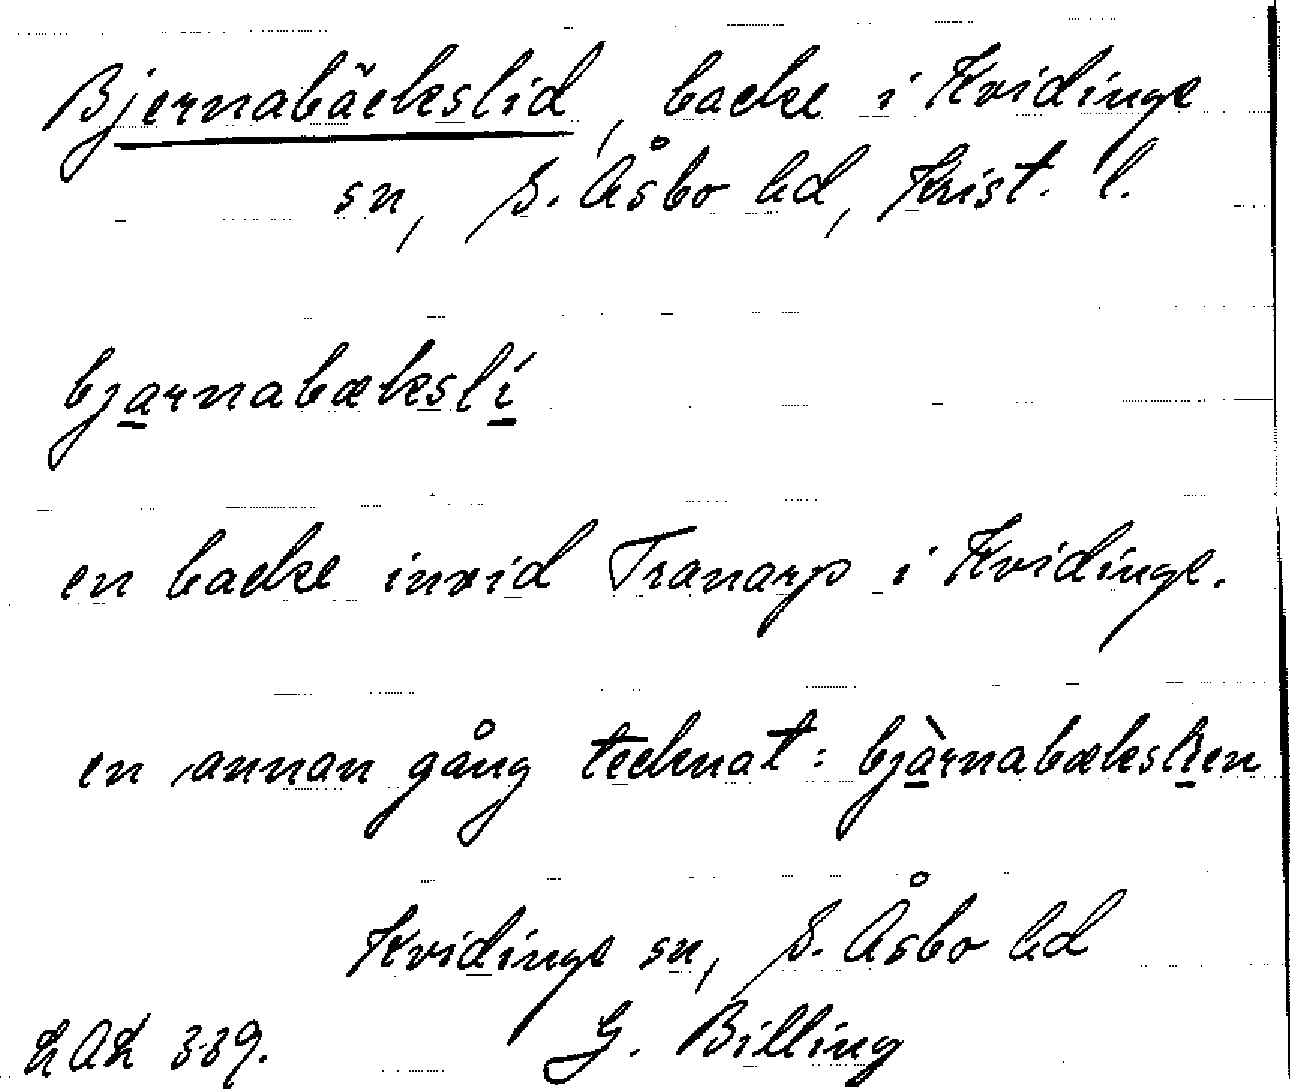 Bjernabäckslid, backe i Kvidinge
sn, S. Åsbo hd, Krist. l.
bjarnabæksli
en backe invid Tranarp i Kvidinge.
en annan gång tecknat: bjàrnabækslien
Kvidinge sn, S. Åsbo hd
G. Billing
LAL 339.